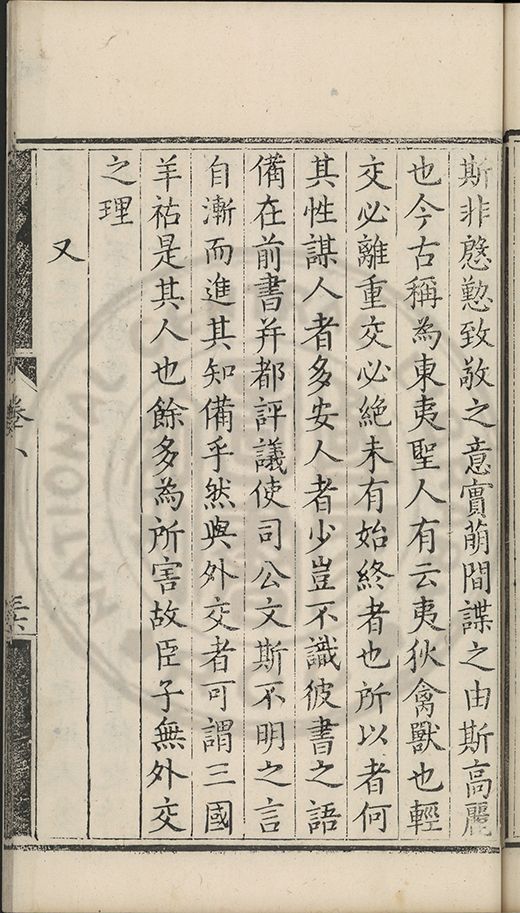 斯非慇懃致敬之意實萌間諜之由斯高麗
也今古稱為東夷聖人有云夷狄禽獸也輕
交必離重交必絕未有始終者也所以者何
其性謀人者多安人者少豈不識彼書之語
備在前書并都評議使司公文斯不明之言
自漸而進其知備乎然與外交者可謂三國
羊祜是其人也餘多為所害故臣子無外交
之理
又
卷八
三六